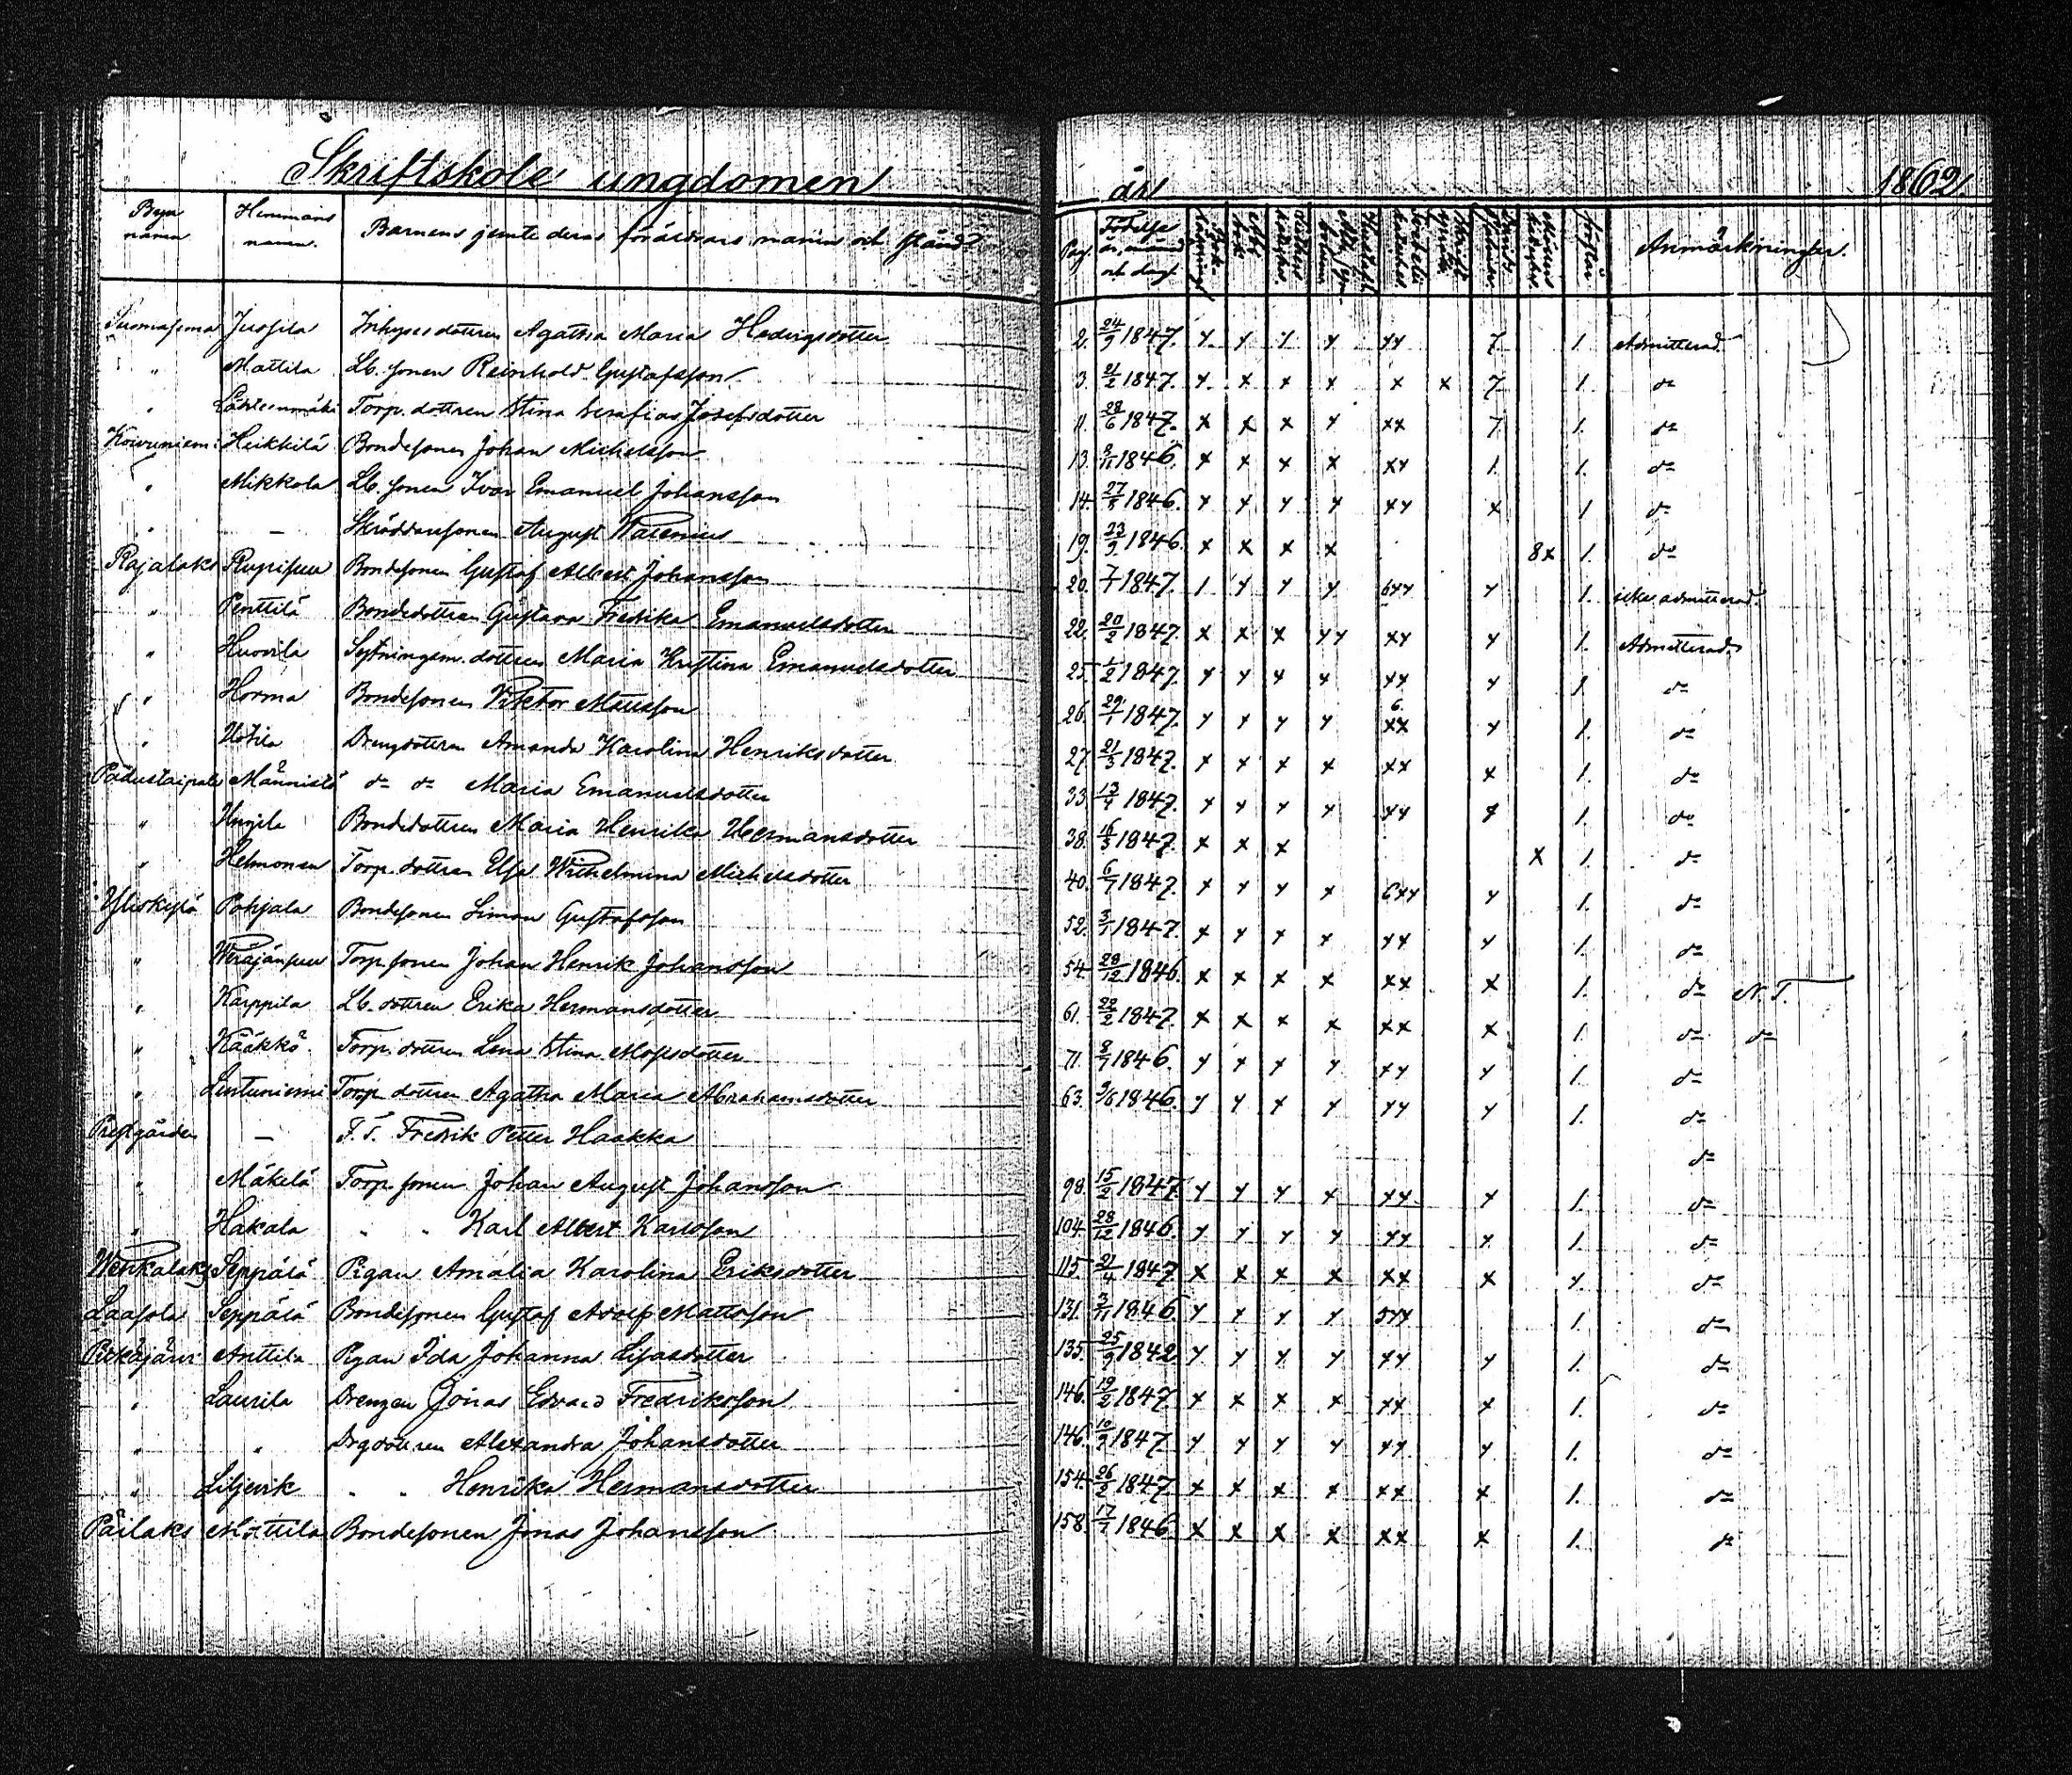 Skriftskole ungdomen år 1862
Byn namn Hemmans namn. Barnens jemte deras föräldrars namn och stånd Pag. Födelse år, månad och dag Anmärkningar.
Juosila Inhyses dottren Agatha Maria Hedvigsdotter 2. 24/9 1847. x x x x xx 7 1. Admitterad.
" Mattila Lb. sonen Reinhold Gustafsson 3. 21/2 1847. x x x x x x 7 1. do
" Torp. dottren Stina Serafia Josefsdotter 11. 28/6 1847. x x x x xx 7 1. do
Koivuniemi Heikkilä Bondesonen Johan Michelsson 13. 1846. x x x x xx 1. 1. do
" Mikkola Lb. sonen Ivar Emanuel Johansson 14. 1846. x x x x xx x 1 do
" — Skräddaresonen August Walenius 19. 23/9 1846. x x x x 8x 1. do
Rajalaks Bondesonen Gustaf Albert Johansson 20. 1847. 1 x x x 6xx x 1. icke admitterad.
" Penttilä Bondedottren Gustava Fredrika Emanuelsdotter 22. 20/2 1847. x x x xx xx x 1. Admitterad.
" Huovila Sytningsm. dottren Maria Kristina Emanuelsdotter 25. 1/2 1847. x x x x xx x 1. do
" Horma Bondesonen Viktor Mattsson 26. 29/1 1847. x x x x 6 xx x 1. do
" Uotila Drengdottren Amanda Karolina Henriksdotter 27. 21/3 1847. x x x x xx x 1. do
Männistö do do Maria Emanuelsdotter 33. 13/4 1847. x x x x xx x 1. do
" Bondedottren Maria Henrika Hermansdotter 38. 16/3 1847. x x x x 1. do
" Helmonen Torp. dottren Elsa Wilhelmina Michelsdotter 40. 6/7 1847. x x x x 6xx x 1. do
Yliskylä Pohjala Bondesonen Simon Gustafsson 52. 3/1 1847. x x x x xx x 1. do
" Weräjänsuu Torp. sonen Johan Henrik Johansson 54. 28/12 1846. x x x x xx x 1. do N. T.
" Karppila Lb. dottren Erika Hermansdotter 61. 22/2 1847. x x x x xx x 1. do do
" Kääkkö Torp. dottren Lena Stina Mosisdotter 71. 8/7 1846. x x x x xx x 1. do
" Lintuniemi Torp. dottren Agatha Maria Abrahamsdotter 63. 1846. x x x x xx x 1. do
Prestgården — F. S. Fredrik Petter Haakka do
" Mäkelä Torp. sonen Johan August Johansson 98. 15/2 1847. x x x x xx x 1. do
" Hakala " " Karl Albert Karlsson 104. 28/12 1846. x x x x xx x 1. do
Seppälä Pigan Amalia Karolina Eriksdotter 115. 21/4 1847 x x x x xx x x do
Laasola Seppälä Bondesonen Gustaf Adolf Mattsson 131. 3/11 1846. x x x x 5xx 1. do
Pitkäjärvi Anttila Pigan Ida Johanna Lisasdotter 135. 25/9 1842. x x x x xx x 1. do
" Laurila Drengen Jonas Edvard Fredriksson 146. 19/2 1847 x x x x xx x 1. do
" " Drgdottren Alexandra Johansdotter 146. 10/9 1847 x x x x xx x 1. do
" Liljevik " " Henrika Hermansdotter 154. 1847 x x x x xx x 1. do
Päilaks Mattila Bondesonen Jonas Johansson 158. 17/7 1846 x x x x xx x 1. do